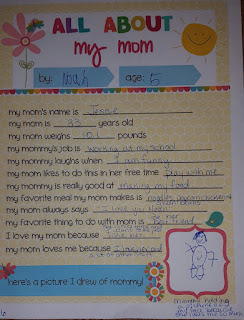 ALL ABOUT
my mom
by: Noah age: 5
my mom's name is Jessie
my mom is 33 years old
my mom weighs 101 pounds
my mommy's job is working at my school
my mommy laughs when I am funny
my mom likes to do this in her free time play with me
my mommy is really good at making my food
my favorite meal my mom makes is
my mom always says I love you Noah
my favorite thing to do with mom is be her best friend
I love my mom because I love her
my mom loves me because
here's a picture I drew of mommy!
mommy holding